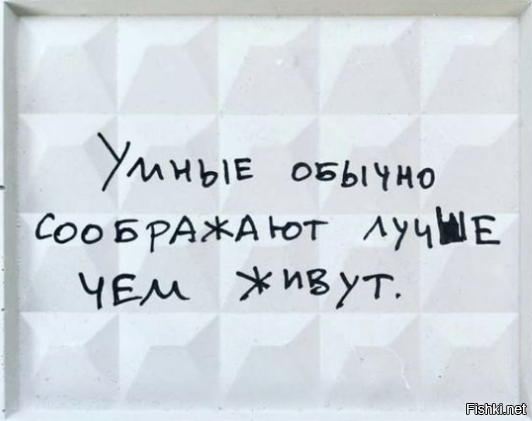 Умные обычно
соображают лучше
чем живут.
Fishki.net